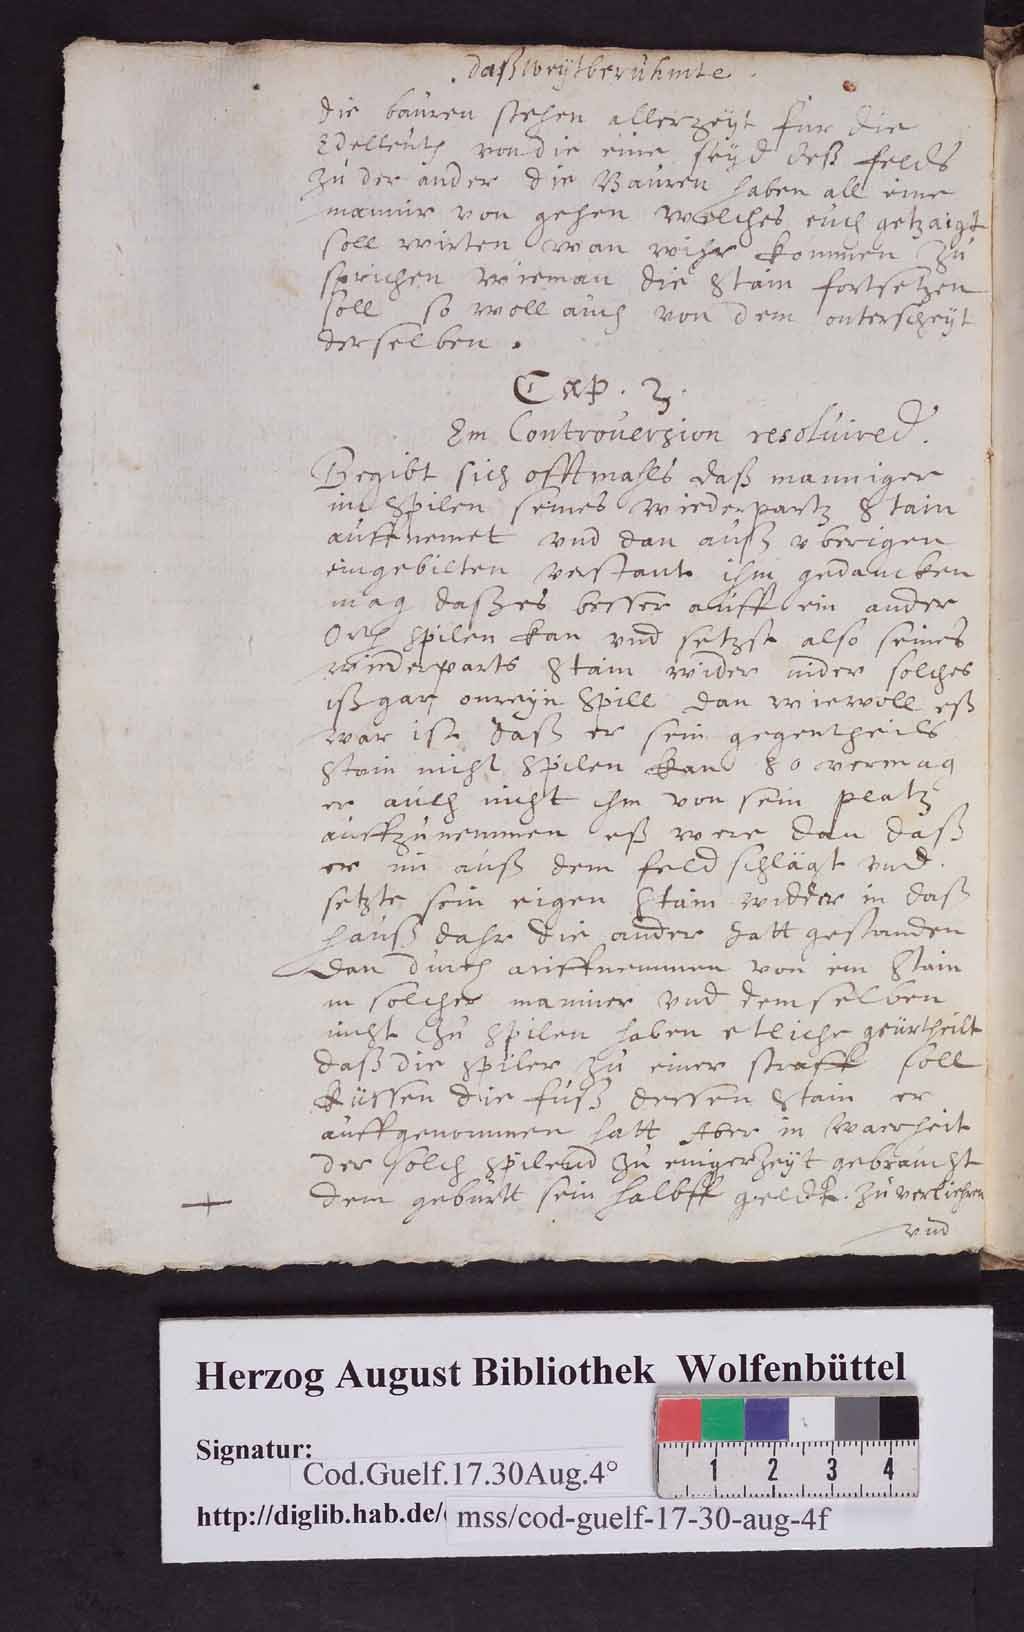 daß weÿtberühmte.
die bauren stehen allerzeÿt fur die
Edelleuth von die eine seÿd deß felds
zu der ander die Bauren haben all eine
manuir von gehen welches euch getzaigt
soll wirten wan wihr kommen zu
sprichen wie man die Stain fortsetzen
soll so woll auch von dem onterscheÿt
derselben.
Cap. 3.
Em Controuersion resoluired.
Begibt sich offtmahls daß manniger
im Spilen seines wiederpartz Stain
auffnemet vnd dan auß vberigen
eingebilten verstant ihm gedancken
mag daß es besser auff ein ander
Orth spilen kan vnd setzst also seines
wiederparts Stain wider nider solches
ist gar onreÿn Spill dan wiewoll eß
war ist daß er sein gegentheils
Stain nicht Spilen kan so vermag
er auch nicht ihm von sein platz
auffzunemmen eß were dan daß
er im auß dem feld schlägt vnd
setzte sein eigen Stain widder in daß
hauß dahr die ander hatt gestanden
Dan durch auffnemmen von ein Stain
in solcher maniner vnd demselben
nicht zu spilen haben etliche geürtheilt
daß die spiler zu einer straff soll
küssen die fuß dessen Stain er
auffgenommen hatt Aber in waerheit
der solch spilend zu einiger zeÿt gebraucht
dem geburtt sein halbff geldt zu verliehren
vnd
Herzog August Bibliothek Wolfenbüttel
Signatur:
Cod.Guelf.17.30Aug.4°
http://diglib.hab.de/ mss/cod-guelf-17-30-aug-4f
1 2 3 4